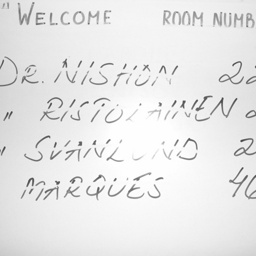 WELCOME ROOM NUMB
DR. NISHON 22
" RISTOLAINEN 2
" SVANLUND 2
MARQUES 46